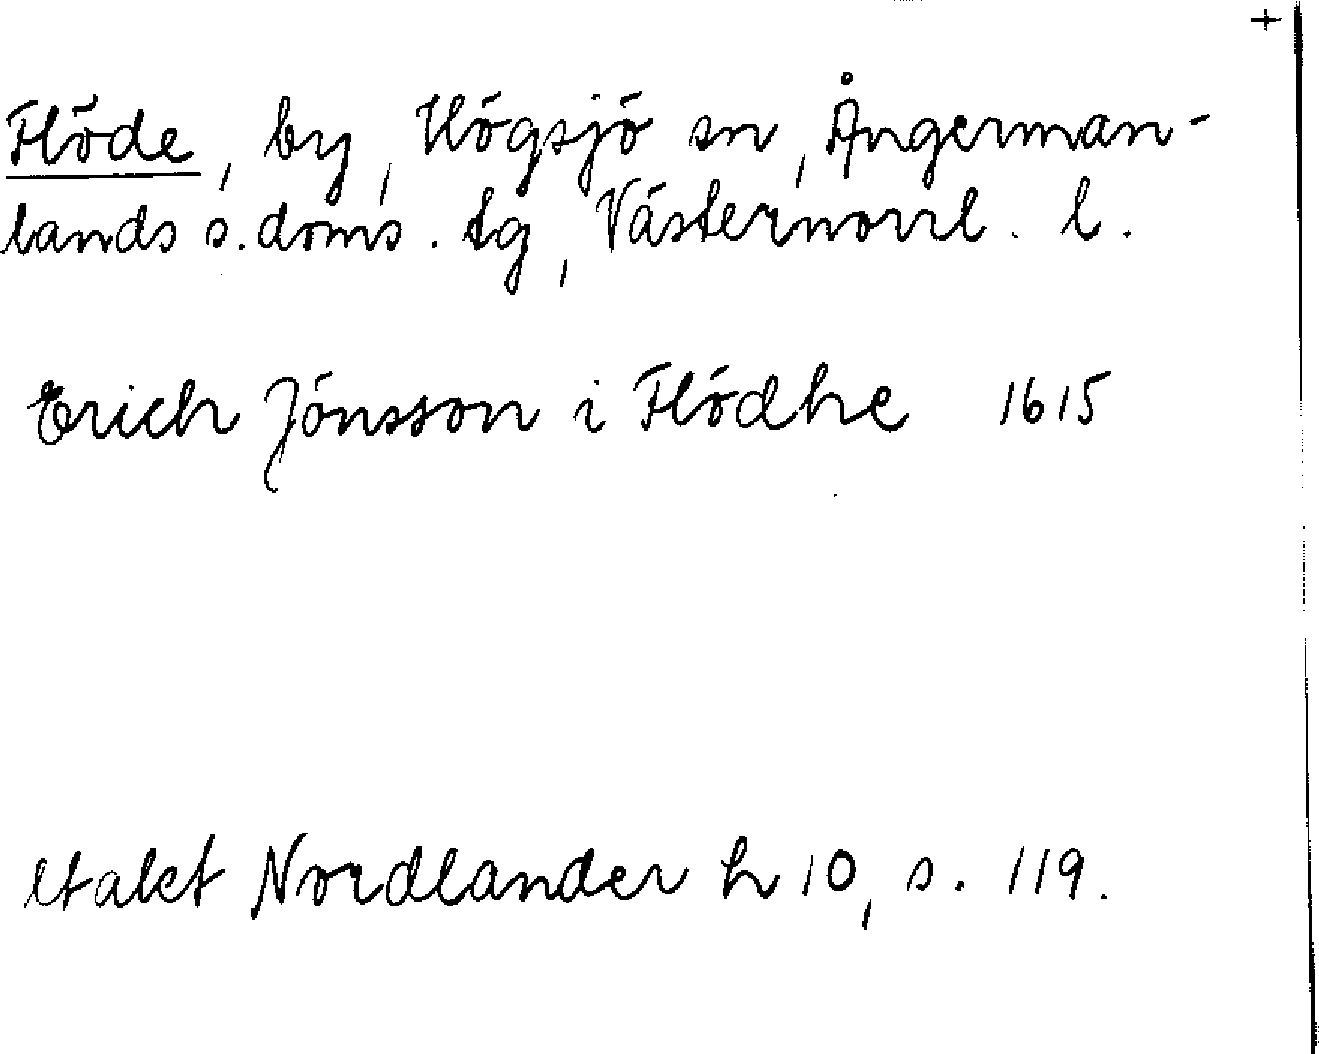 +
Flöde, by, Högsjö sn, Ångerman-
lands s. doms. tg, Västernorrl. l.
Erich Jönsson i Flödhe 1615
Utakt Nordlander h 10, s. 119.